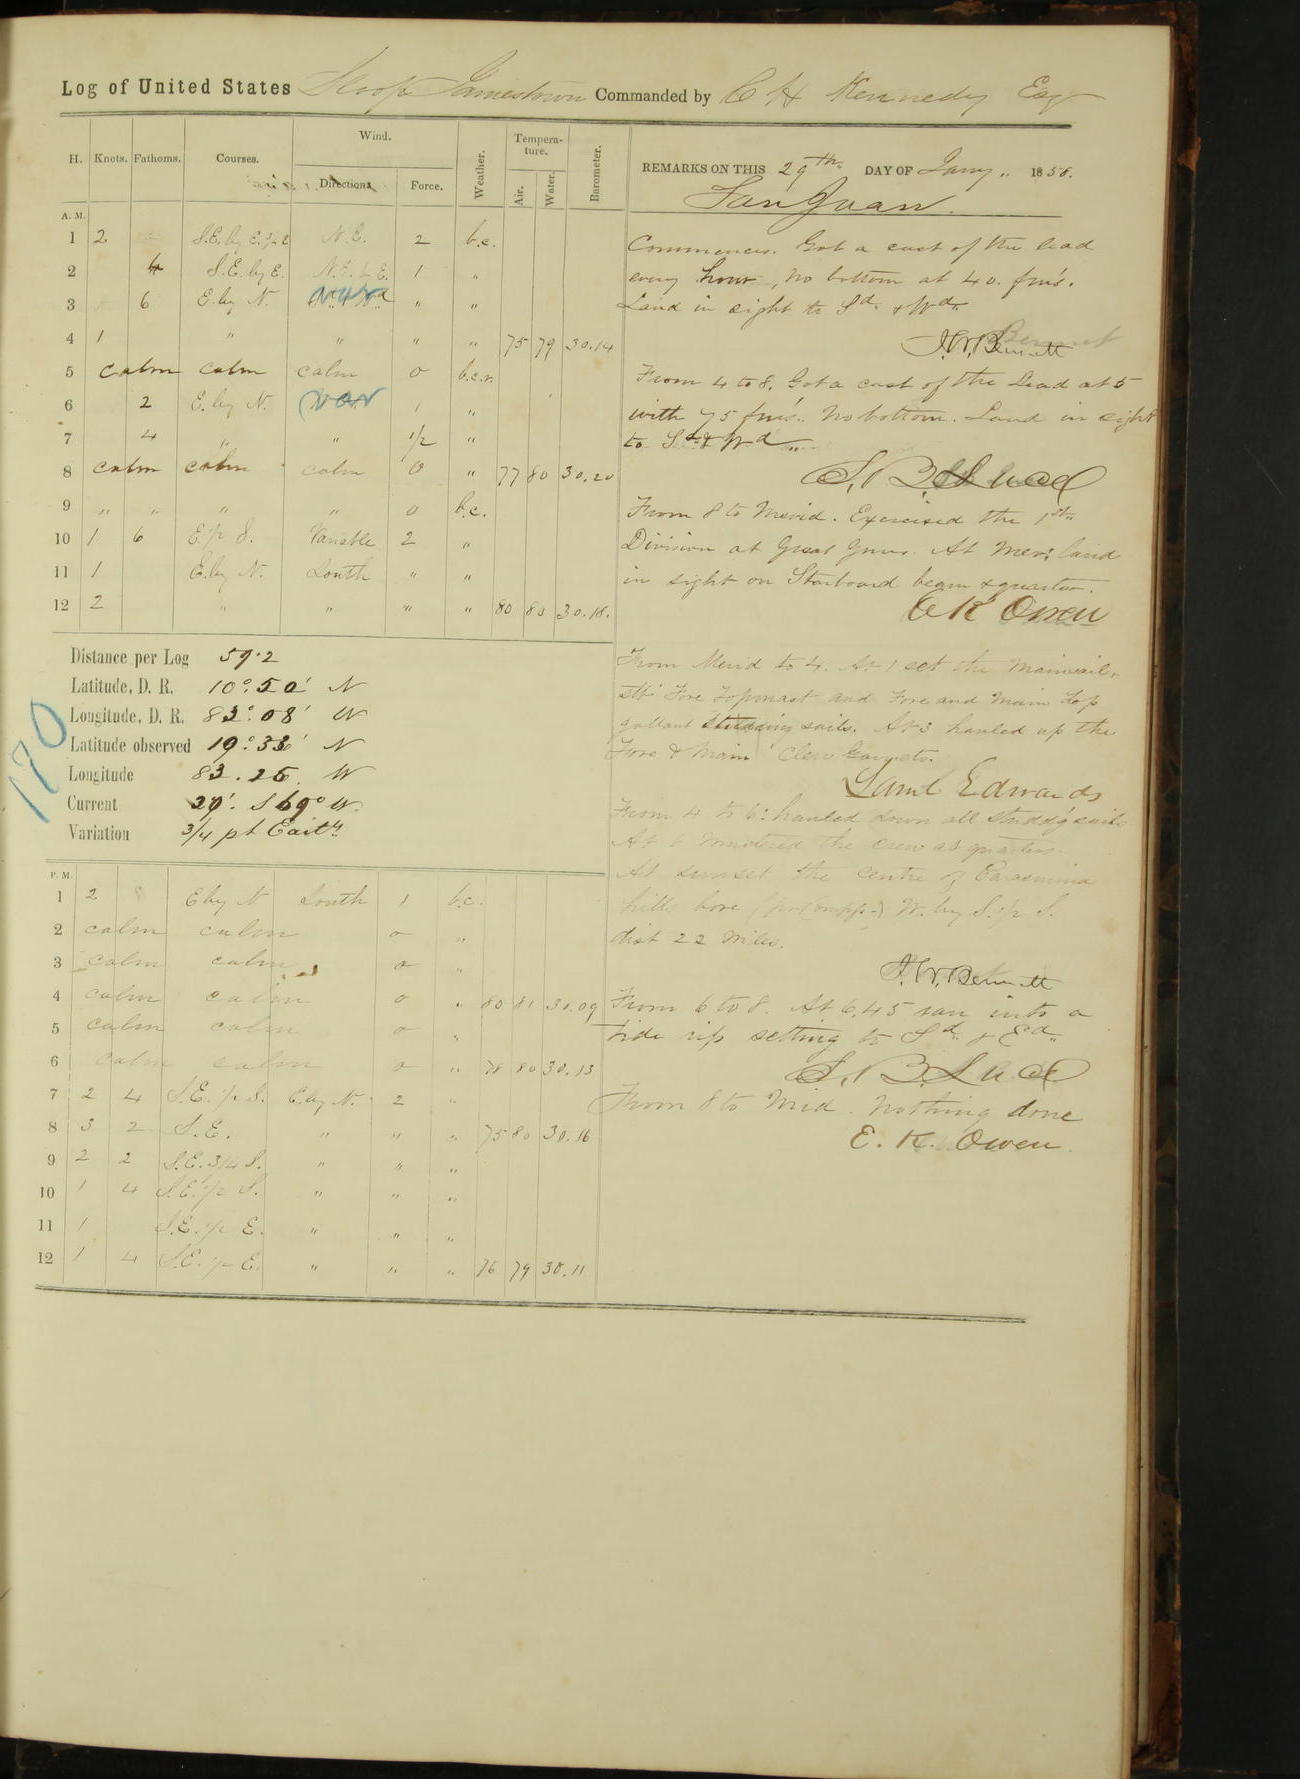 Log of United States Sloop Jamestown Commanded by C H Kennedy Esq
H. Knots. Fathoms. Courses. Wind. Direction. Force. Weather. Tempera-ture. Air. Water. Barometer.
REMARKS ON THIS 29th DAY OF Jany " 1858.
San Juan
A. M.
1 2 S.E. by E. 1/2 E N.E. 2 b.c.
2 4 S.E. by E. N.E. 1 "
3 6 E. by N. " "
4 1 " " " " 75 79 30.14
5 calm calm calm 0 b.c.r.
6 2 E. by N. 1 "
7 4 " " 1/2 "
8 calm calm calm 0 " 77 80 30.20
9 " " " " 0 b.c.
10 1 6 E. 1/2 S. Variable 2 "
11 1 E. by N. South " "
12 2 " " " " 80 80 30.18.
Commences. Got a cast of the lead
every hour, no bottom at 40. fms.
Land in sight to Sd. & Wd.
J.W. Bennett
From 4 to 8. Got a cast of the Lead at 5
with 75 fms. No bottom. Land in sight
to Sd & Wd "
S. B. Luce
From 8 to Merid. Exercised the 1st
Division at Great Guns. At Mer: land
in sight on Starboard beam & quarter.
E K Owen
Distance per Log 59.2
Latitude, D. R. 10°. 50' N
Longitude, D. R. 83°. 08' W
Latitude observed 10°. 33' N
Longitude 83. 25. W
Current 29'. S 69° W.
Variation 3/4 pt East
170
From Merid to 4. At 1 set the Mainsail,
Fore Topmast and Fore and Main top
gallant Studding sails. At 3 hauled up the
Fore & Main Clew Garnets.
Saml Edwards
From 4 to 6: hauled down all studdg sails
At 6 mustered the crew at quarters.
At sunset the centre of
hills bore W. by S. 1/2 S.
dist 22 Miles.
J. W. Bennett
From 6 to 8. At 6.45 ran into a
tide rip setting to Sd. & Ed.
S. B. Luce
From 8 to Mid. Nothing done
E. K. Owen.
P. M.
1 2 E by N South 1 b.c.
2 calm calm 0 "
3 calm calm 0 "
4 calm calm 0 " 80 81 30.09
5 calm calm 0 "
6 calm calm 0 " 78 80 30.13
7 2 4 S.E. 1/2 S. E. by N. 2 "
8 3 2 S.E. " " " 75 80 30.16
9 2 2 S.E. 3/4 S. " " "
10 1 4 S.E. 1/2 S. " " "
11 1 S.E. 1/2 E. " " "
12 1 4 S.E. 1/2 E. " " " 76 79 30.11